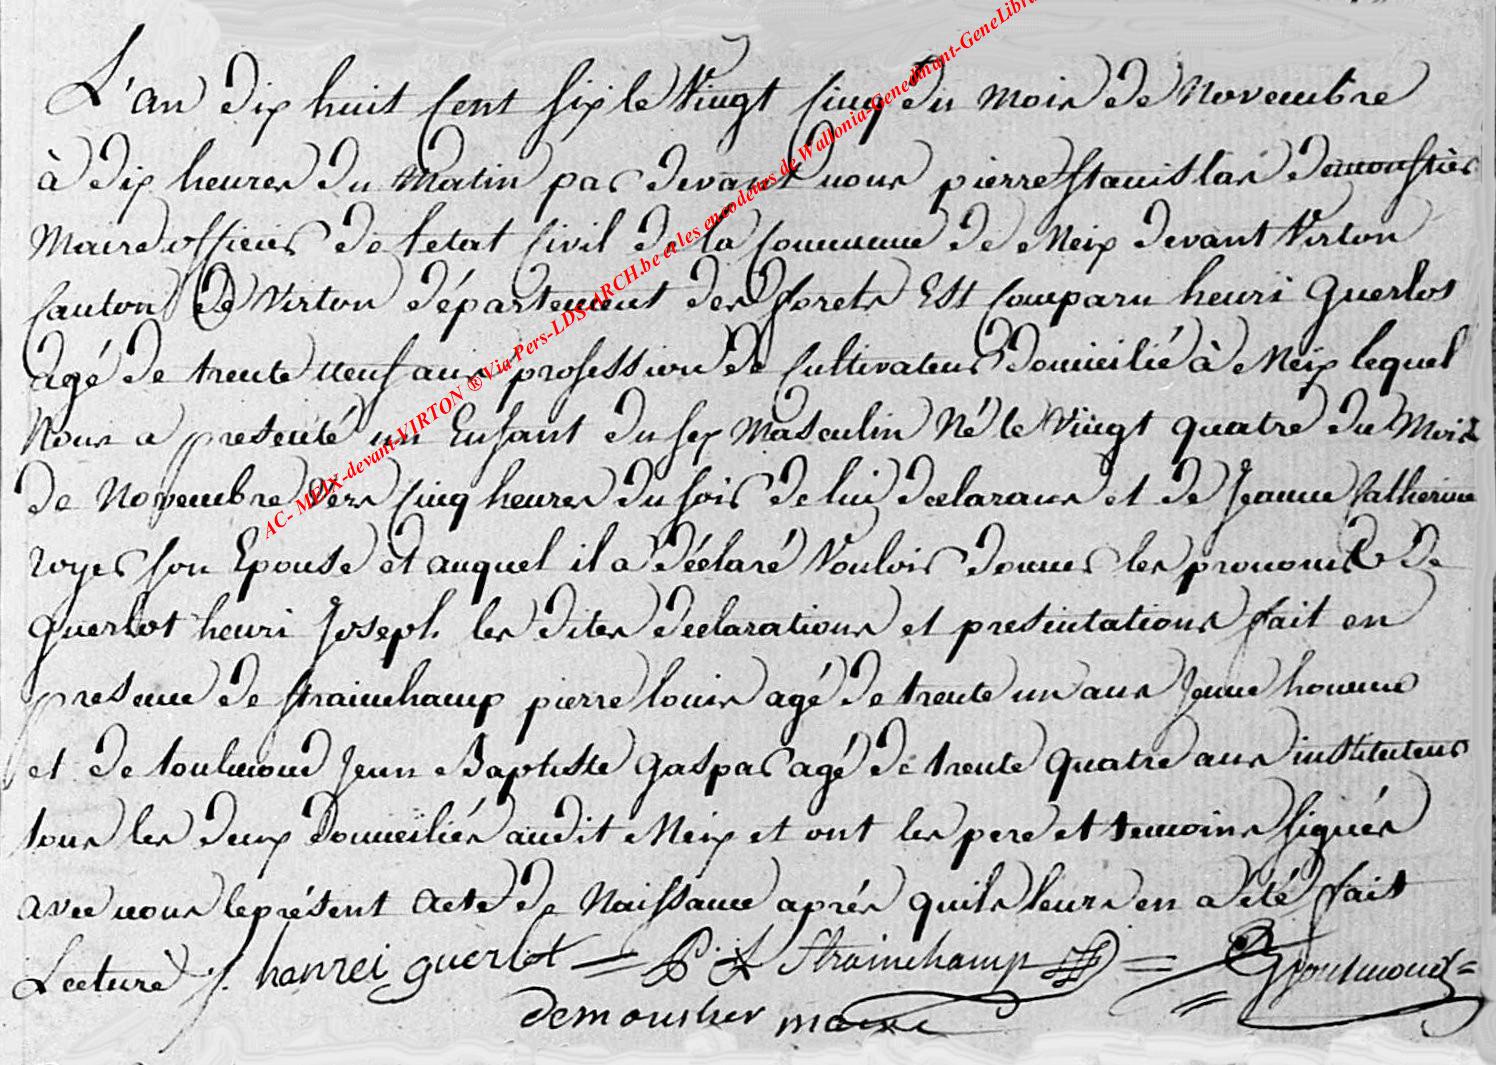 L'an dix huit cent six le vingt cinq du mois de novembre
à dix heures du matin par devant nous pierre stanislas demoustier
maire officier de letat civil de la commune de Meix devant virton
canton de virton département des forets Est comparu henri guerlot
agé de trente neuf ans profession de cultivateur domicilié à Meix lequel
Nous a presenté un Enfant du sex Masculin Né le vingt quatre du Mois
de novembre vers cinq heures du soir de lui declarant et de Jeanne Catherine
royer son Epouse et auquel il a déclaré vouloir donner les prenoms de
guerlot henri Joseph. les dites declarations et presentations fait en
presence de strainchamp pierre louis agé de trente un ans Jeune homme
et de toulmond Jean Baptiste gaspar agé de trente quatre ans instituteur
tous les deux domiciliés audit Meix et ont les pere et temoins signés
avec nous le présent acte de Naissance après quils leurs en a été fait
Lecture /. hanrei guerlot = P. L Strainchamp = G toulmond =
demoustier maire
AC- MEIX-devant-VIRTON ® Via Pers-LDS-ARCH.be et les encodeurs de Wallonia-Genedinant-GeneLibra